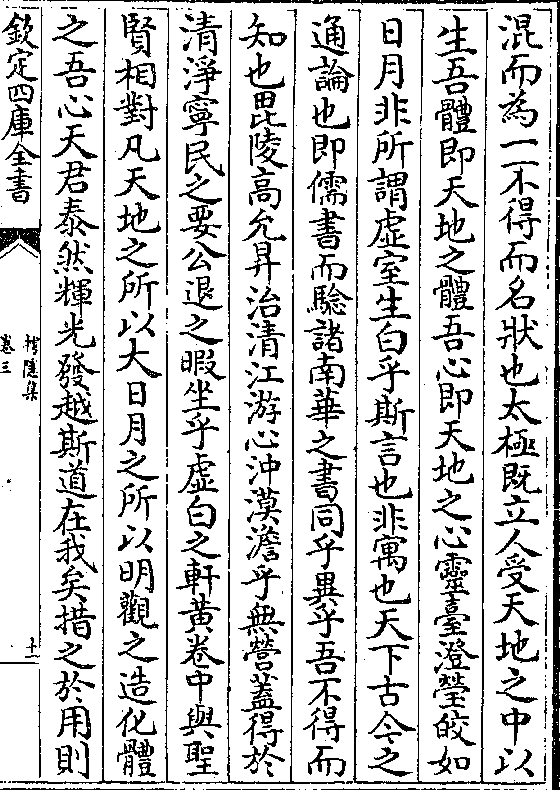 混而為一不得而名狀也太極既立人受天地之中以
生吾體即天地之體吾心即天地之心靈臺澄瑩皎如
日月非所謂虛室生白乎斯言也非寓也天下古今之
通論也即儒書而驗諸南華之書同乎異乎吾不得而
知也毘陵高允昇治清江游心沖漠澹乎無營蓋得於
清淨寧民之要公退之暇坐乎虛白之軒黃卷中與聖
賢相對凡天地之所以大日月之所以明觀之造化體
之吾心天君泰然輝光發越斯道在我矣措之於用則
欽定四庫全書
卷三
十一